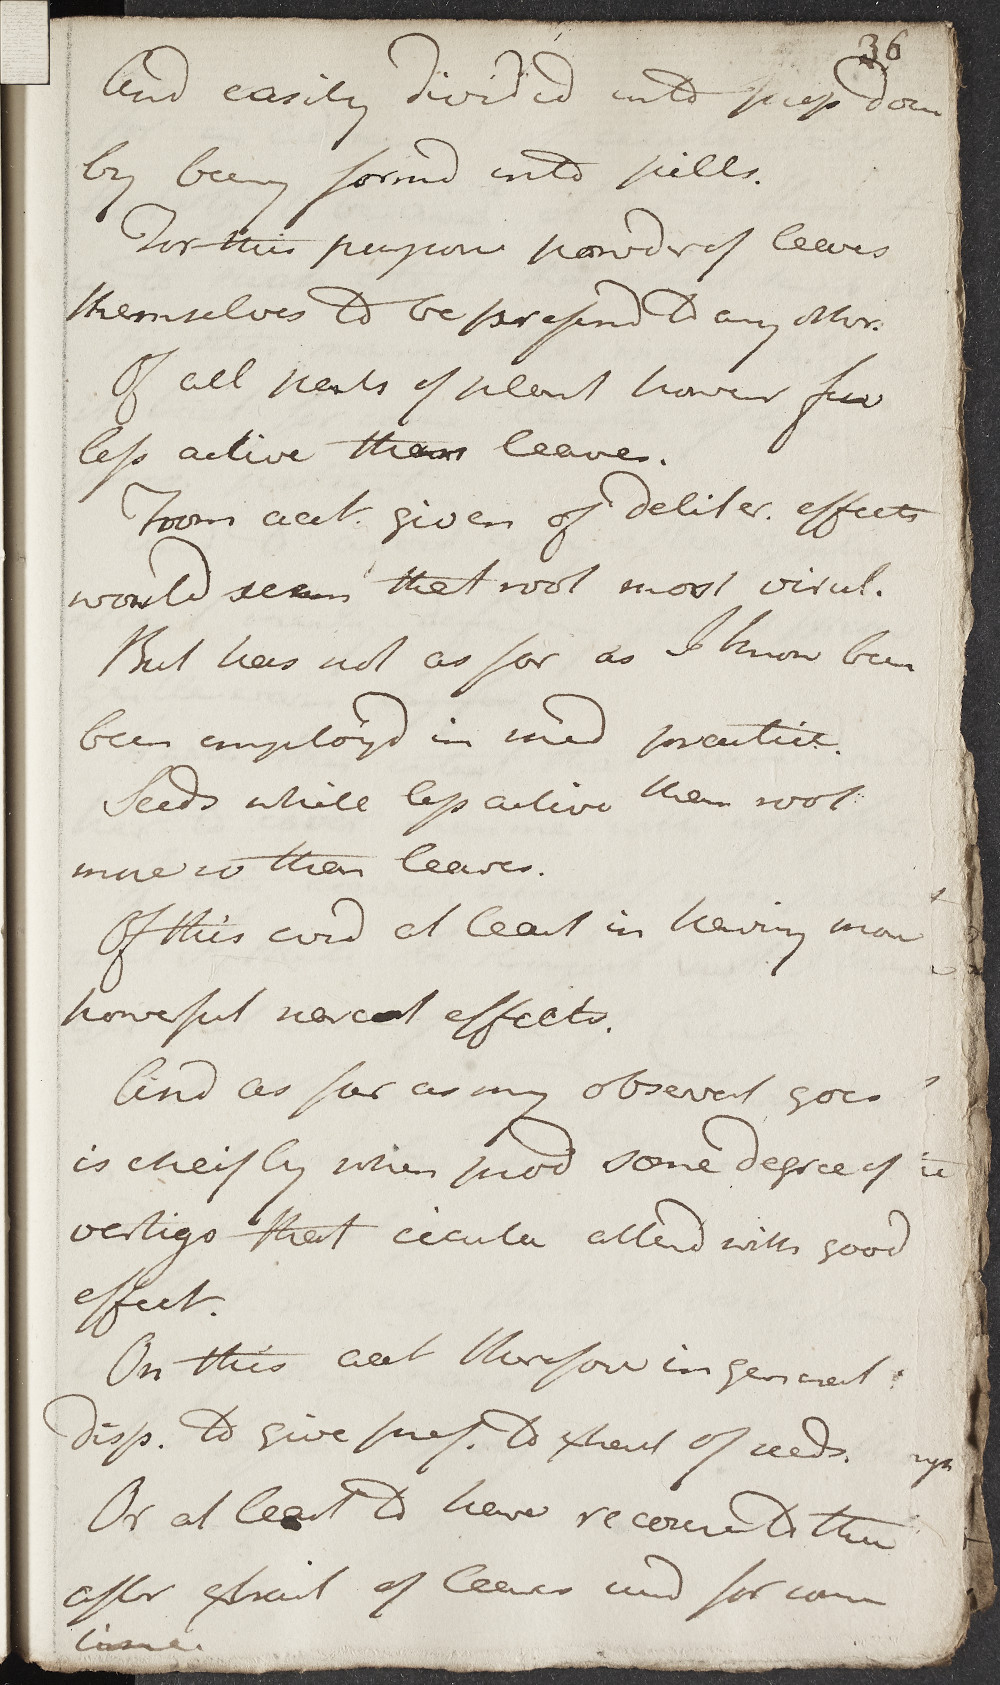 36
And easily divided into prop dose
by being formd into pills.
For this purpose powder of leaves
themselves to be prefend to any other.
Of all parts of plant however few
less active than leaves.
From acct. given of deliter. effects
would seem that root most virul.
But has not as far as I know been
been employ'd in med practice.
Seeds while less active than root
more so than leaves.
Of this evid at least in having more
powerful narcot effects.
And as far as my observat goes
is cheifly when prod some degree of
vertigo that cicuta attend with good
effect.
On this acct therefore in general
disp. to give pref. to extract of seeds.
Or at least to have recourse to them
after extract of leaves used for some
time.